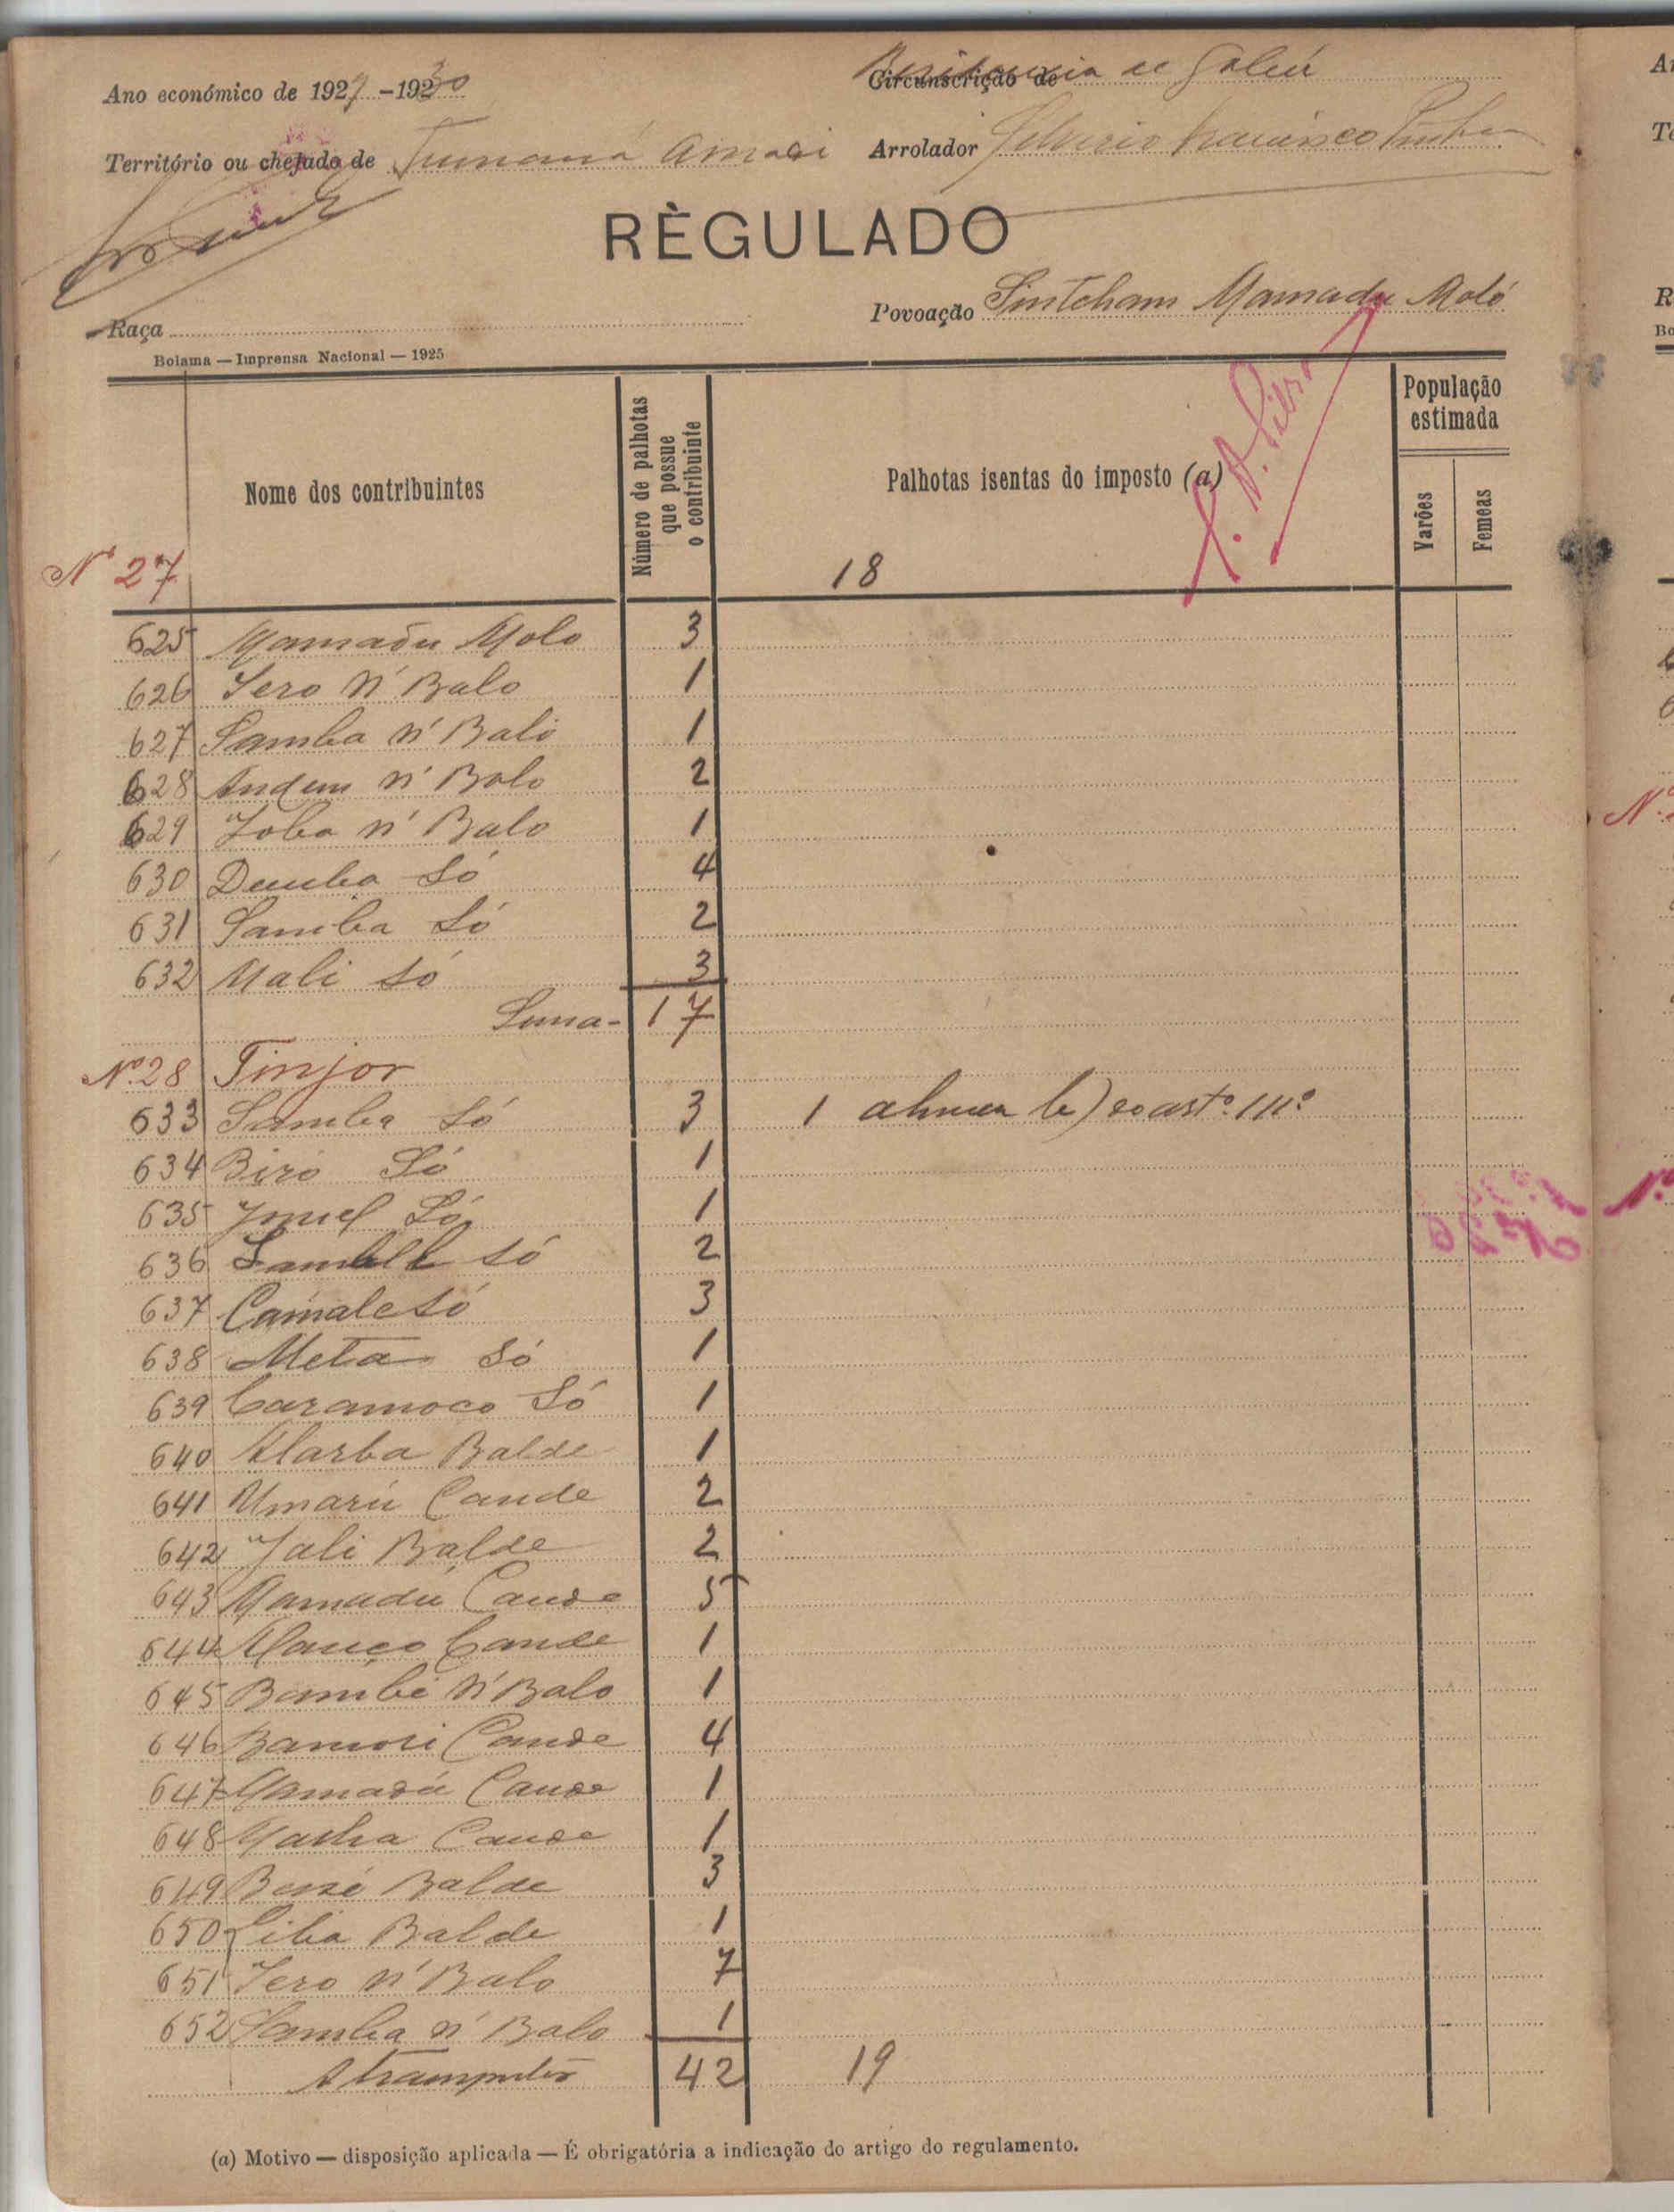 Ano económico de 1929-1930
Circunscrição de
de Gabú
Território ou chefado de Tumaná
Arrolador
RÈGULADO
Povoação Sintcham Mamadu Moló
Raça
Bolama — Imprensa Nacional — 1925
Nome dos contribuintes
Número de palhotas que possue o contribuinte
Palhotas isentas do imposto (a)
População estimada
Varões
Femeas
Nº 27
18
625 Mamadu Molo 3
626 Iero N'Balo 1
627 Samba N'Balo 1
628 N'Balo 2
629 N'Balo 1
630 Demba Só 4
631 Samba Só 2
632 Mali Só 3
Suma - 17
Nº 28 Tinjor
633 Samba Só 3 1 b) artº 111º
634 Biró Só 1
635 Só 1
636 Só 2
637 Camale Só 3
638 Meta Só 1
639 Caramoco Só 1
640 Balde 1
641 Umarú Cande 2
642 Jali Balde 2
643 Mamadú Cande 5
644 Cande 1
645 Bambé N'Balo 1
646 Bamori Cande 4
647 Mamadú Cande 1
648 Cande 1
649 Balde 3
650 Balde 1
651 Iero N'Balo 7
652 Samba N'Balo 1
42 19
(a) Motivo — disposição aplicada — É obrigatória a indicação do artigo do regulamento.